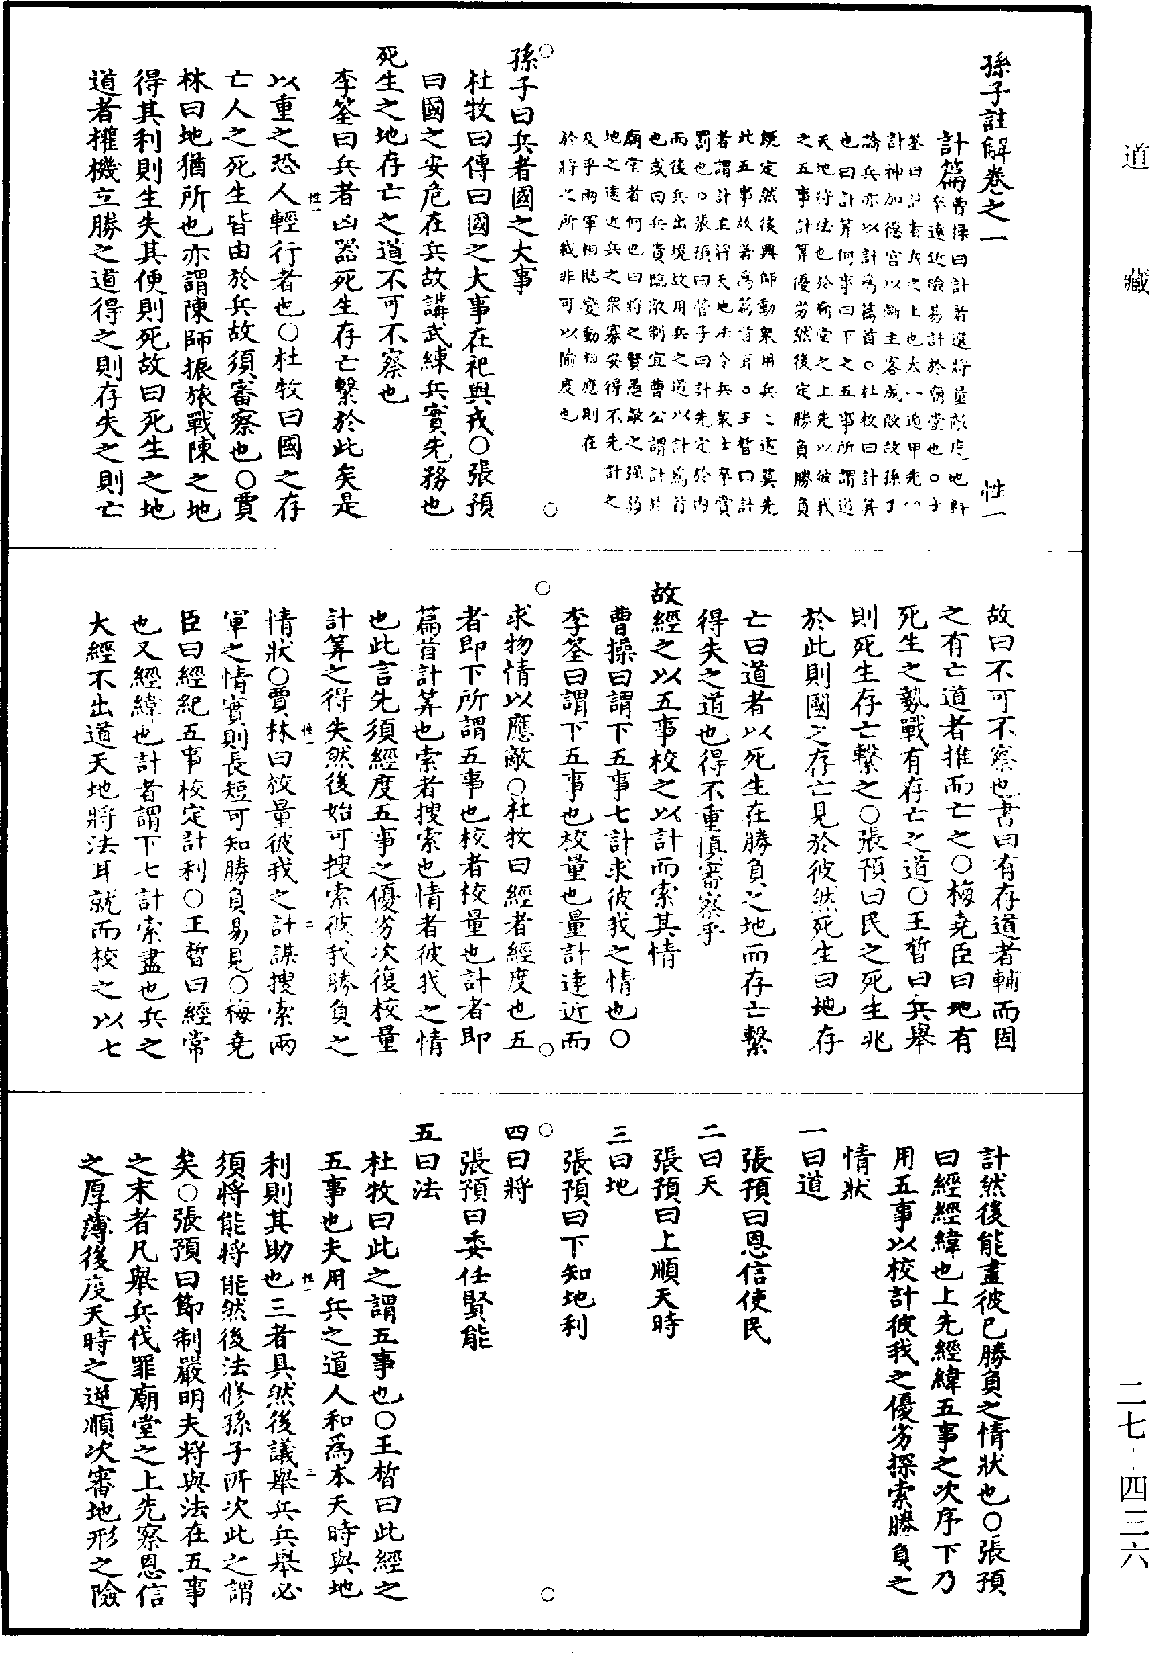 道藏
孫子註解卷之一
性一
計篇曹操曰計者選將量敵度地料
卒遠近險易計於廟堂也○李
筌曰計者兵之上也太一遁甲先以
計神加德宮以斷主客成敗故孫子
論兵亦以計為篇首○杜牧曰計算
也曰計算何事曰下之五事所謂道
天地將法也於廟堂之上先以彼我
之五事計算優劣然後定勝負勝負
既定然後興師動眾用兵之道莫先
此五事故著為篇首耳○王晳曰計
者謂計主將天地法令兵眾士卒賞
罰也○張預曰管子曰計先定於內
而後兵出境故用兵之道以計為首
也或曰兵貴臨敵制宜曹公謂計於
廟堂者何也曰將之賢愚敵之強弱
地之遠近兵之眾寡安得不先計之
及乎兩軍相臨變動相應則在
於將之所裁非可以隃度也
孫子曰兵者國之大事
杜牧曰傳曰國之大事在祀與戎○張預
曰國之安危在兵故講武練兵實先務也
死生之地存亡之道不可不察也
李筌曰兵者凶器死生存亡繫於此矣是
性一
以重之恐人輕行者也○杜牧曰國之存
亡人之死生皆由於兵故須審察也○賈
林曰地猶所也亦謂陳師振旅戰陳之地
得其利則生失其便則死故曰死生之地
道者權機立勝之道得之則存失之則亡
故曰不可不察也書曰有存道者輔而固
之有亡道者推而亡之○梅堯臣曰地有
死生之勢戰有存亡之道○王晳曰兵舉
則死生存亡繫之○張預曰民之死生兆
於此則國之存亡見於彼然死生曰地存
亡曰道者以死生在勝負之地而存亡繫
得失之道也得不重慎審察乎
故經之以五事校之以計而索其情
曹操曰謂下五事七計求彼我之情也○
李筌曰謂下五事也校量也量計遠近而
求物情以應敵○杜牧曰經者經度也五
者即下所謂五事也校者校量也計者即
篇首計算也索者搜索也情者彼我之情
也此言先須經度五事之優劣次復校量
計算之得失然後始可搜索彼我勝負之
性一
二
情狀○賈林曰校量彼我之計謀搜索兩
軍之情實則長短可知勝負易見○梅堯
臣曰經紀五事校定計利○王晳曰經常
也又經緯也計者謂下七計索盡也兵之
大經不出道天地將法耳就而校之以七
計然後能盡彼己勝負之情狀也○張預
曰經經緯也上先經緯五事之次序下乃
用五事以校計彼我之優劣探索勝負之
情狀
一曰道
張預曰恩信使民
二曰天
張預曰上順天時
三曰地
張預曰下知地利
四曰將
張預曰委任賢能
五曰法
杜牧曰此之謂五事也○王晳曰此經之
五事也夫用兵之道人和為本天時與地
性一
三
利則其助也三者具然後議舉兵兵舉必
須將能將能然後法修孫子所次此之謂
矣○張預曰節制嚴明夫將與法在五事
之末者凡舉兵伐罪廟堂之上先察恩信
之厚薄後度天時之逆順次審地形之險
二七-四三六